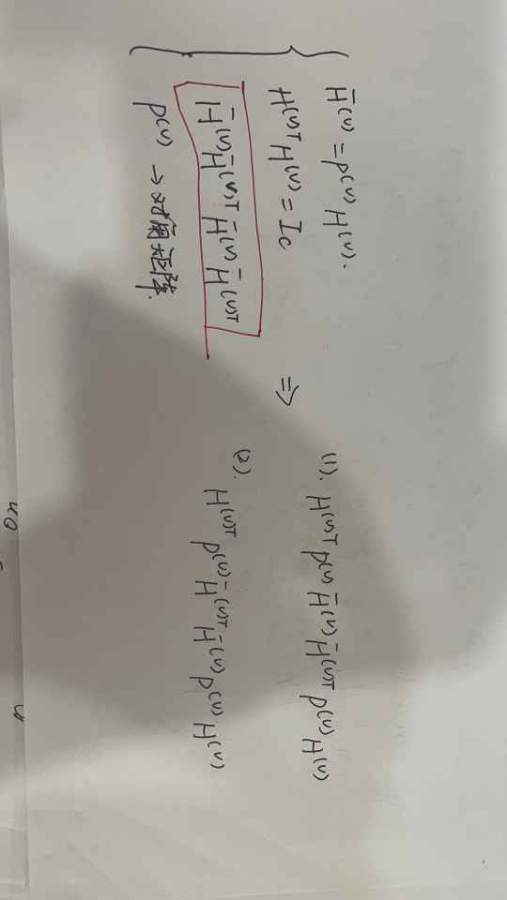 H̄⁽ᵛ⁾ = P⁽ᵛ⁾ H⁽ᵛ⁾.
H⁽ᵛ⁾ᵀ H⁽ᵛ⁾ = Ic
H̄⁽ᵛ⁾ H̄⁽ᵛ⁾ᵀ H̄⁽ᵛ⁾ H̄⁽ᵛ⁾ᵀ
P⁽ᵛ⁾ → 对角矩阵.
⇒
(1). H⁽ᵛ⁾ᵀ P⁽ᵛ⁾ H̄⁽ᵛ⁾ H̄⁽ᵛ⁾ᵀ P⁽ᵛ⁾ H⁽ᵛ⁾
(2). H⁽ᵛ⁾ᵀ P⁽ᵛ⁾ H̄⁽ᵛ⁾ᵀ H̄⁽ᵛ⁾ P⁽ᵛ⁾ H⁽ᵛ⁾